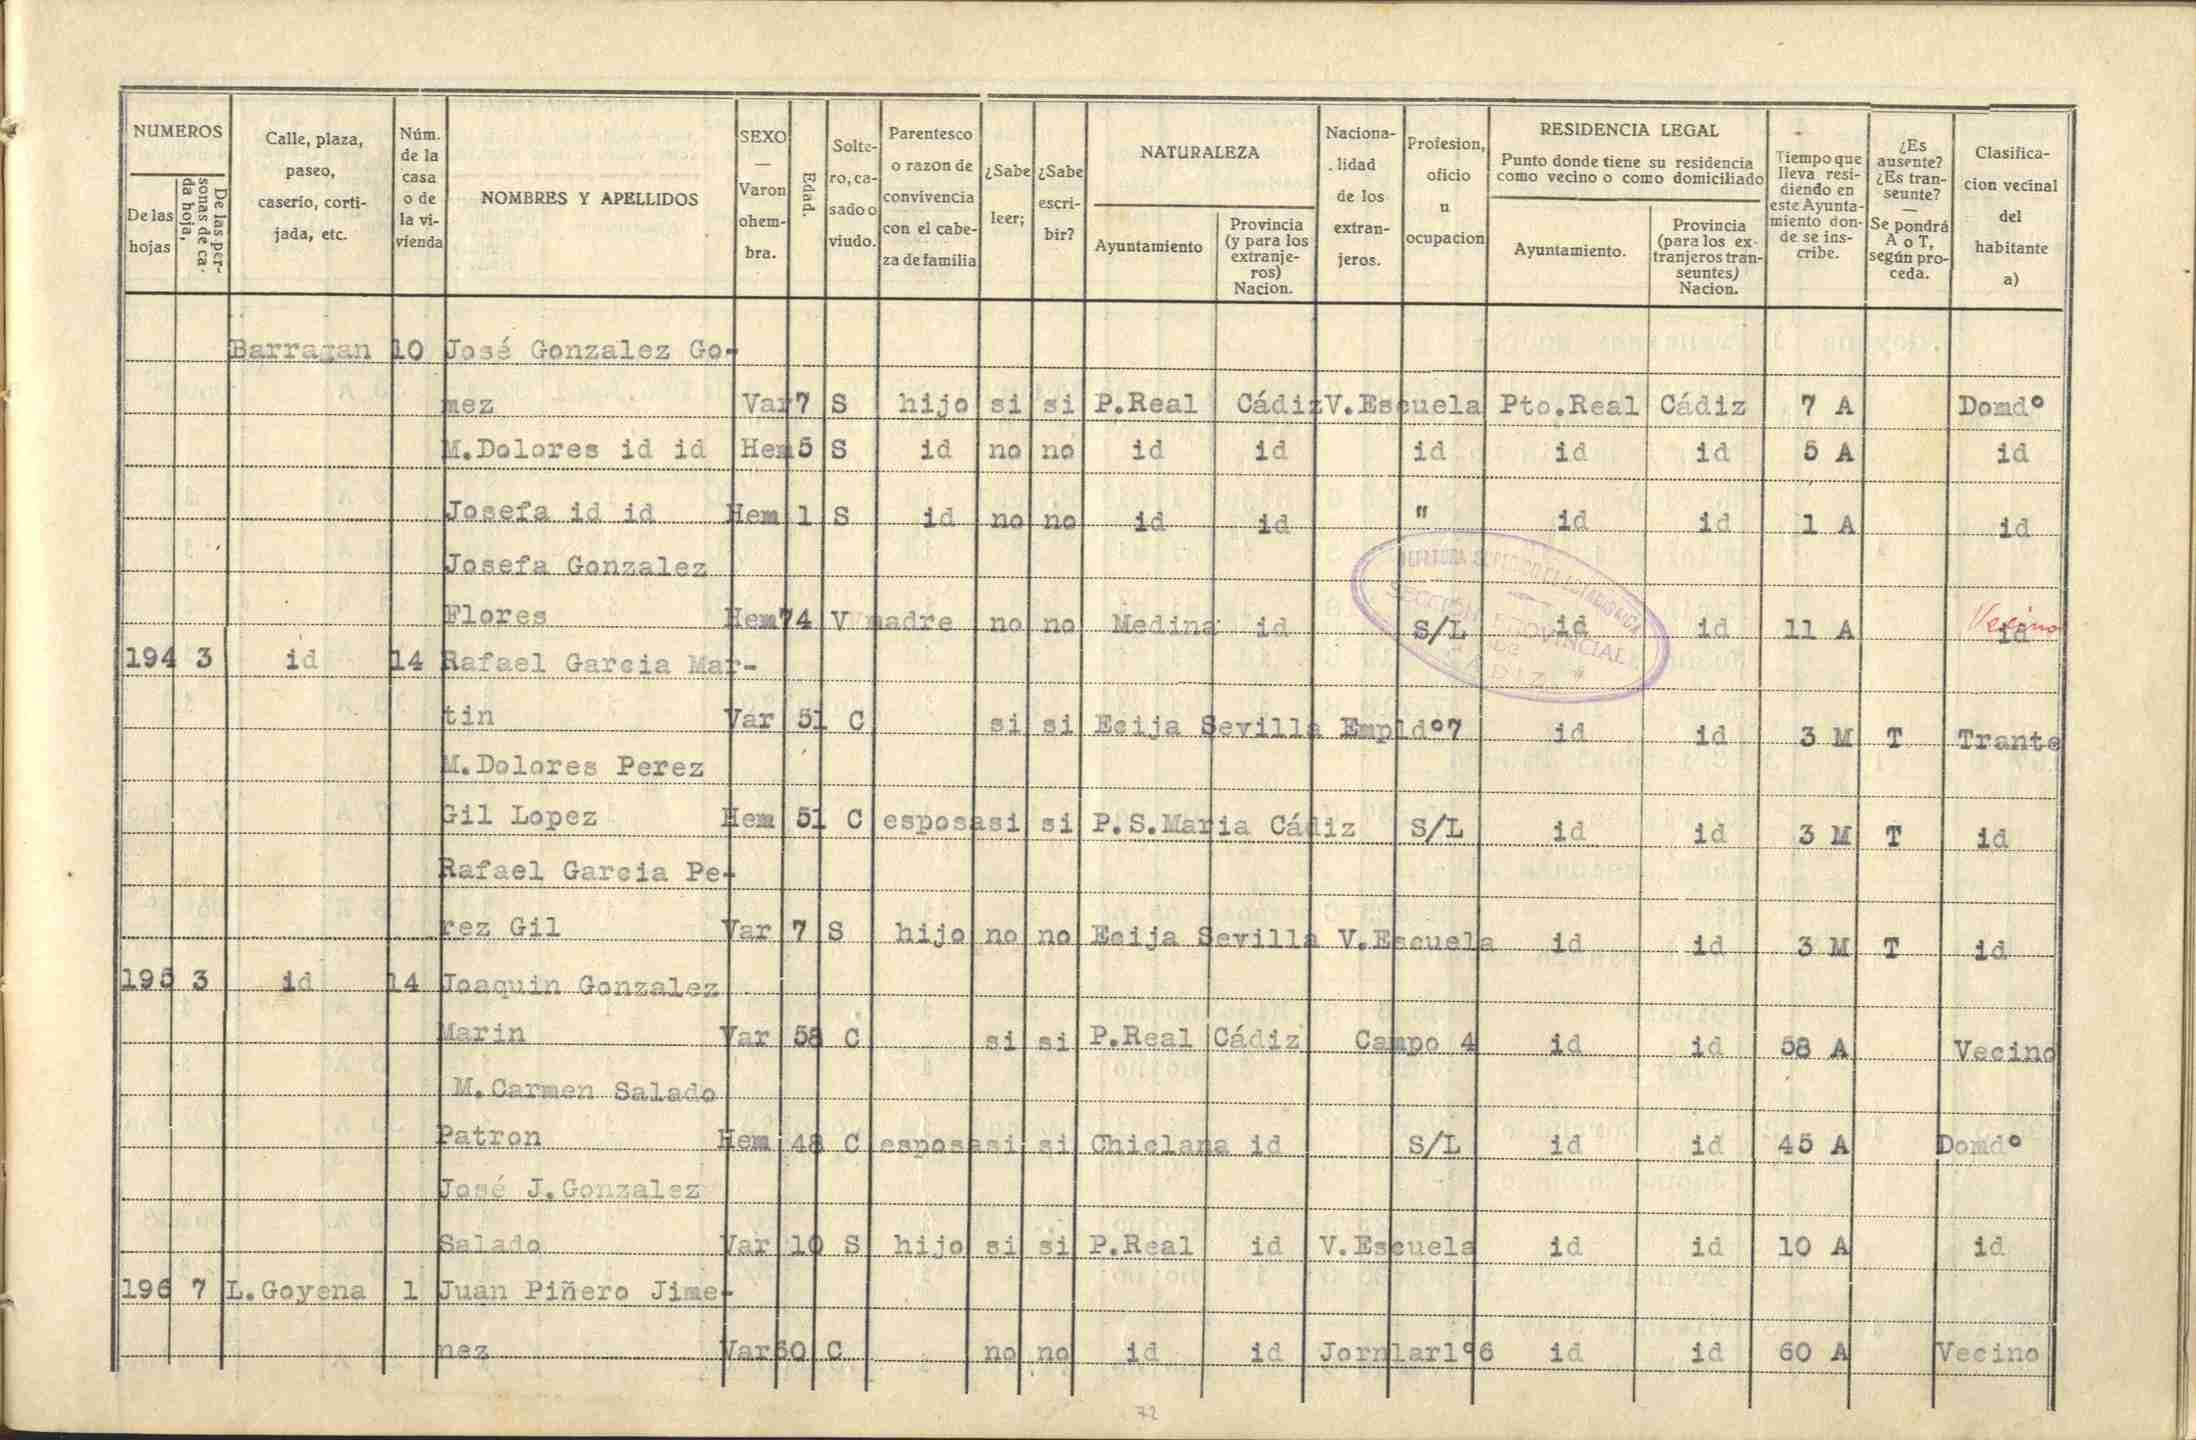 NUMEROS
De las hojas
De las personas de cada hoja,
Calle, plaza, paseo, caserio, cortijada, etc.
Núm. de la casa o de la vivienda
NOMBRES Y APELLIDOS
SEXO — Varon ohembra.
Edad.
Soltero, casado o viudo.
Parentesco o razon de convivencia con el cabeza de familia
¿Sabe leer;
¿Sabe escribir?
NATURALEZA
Ayuntamiento
Provincia (y para los extranjeros) Nacion.
Nacionalidad de los extranjeros.
Profesion, oficio u ocupacion
RESIDENCIA LEGAL
Punto donde tiene su residencia como vecino o como domiciliado
Ayuntamiento.
Provincia (para los extranjeros transeuntes) Nacion.
Tiempo que lleva residiendo en este Ayuntamiento donde se inscribe.
¿Es ausente? ¿Es transeunte? — Se pondrá A o T, según proceda.
Clasificacion vecinal del habitante a)
Barragan 10 José Gonzalez Go-
mez Var 7 S hijo si si P.Real Cádiz V.Escuela Pto.Real Cádiz 7 A Domdº
M.Dolores id id Hem 5 S id no no id id id id id 5 A id
Josefa id id Hem 1 S id no no id id " id id 1 A id
Josefa Gonzalez
Flores Hem 74 V madre no no Medina id S/L id id 11 A id Vecino
SECCIÓN PROVINCIAL DE CADIZ
194 3 id 14 Rafael Garcia Mar-
tin Var 51 C si si Ecija Sevilla Empldº7 id id 3 M T Trante
M.Dolores Perez
Gil Lopez Hem 51 C esposa si si P.S.Maria Cádiz S/L id id 3 M T id
Rafael Garcia Pe-
rez Gil Var 7 S hijo no no Ecija Sevilla V.Escuela id id 3 M T id
195 3 id 14 Joaquin Gonzalez
Marin Var 58 C si si P.Real Cádiz Campo 4 id id 58 A Vecino
M.Carmen Salado
Patron Hem 48 C esposa si si Chiclana id S/L id id 45 A Domdº
José J.Gonzalez
Salado Var 10 S hijo si si P.Real id V.Escuela id id 10 A id
196 7 L.Goyena 1 Juan Piñero Jime-
nez Var 60 C no no id id Jornlarlº6 id id 60 A Vecino
72